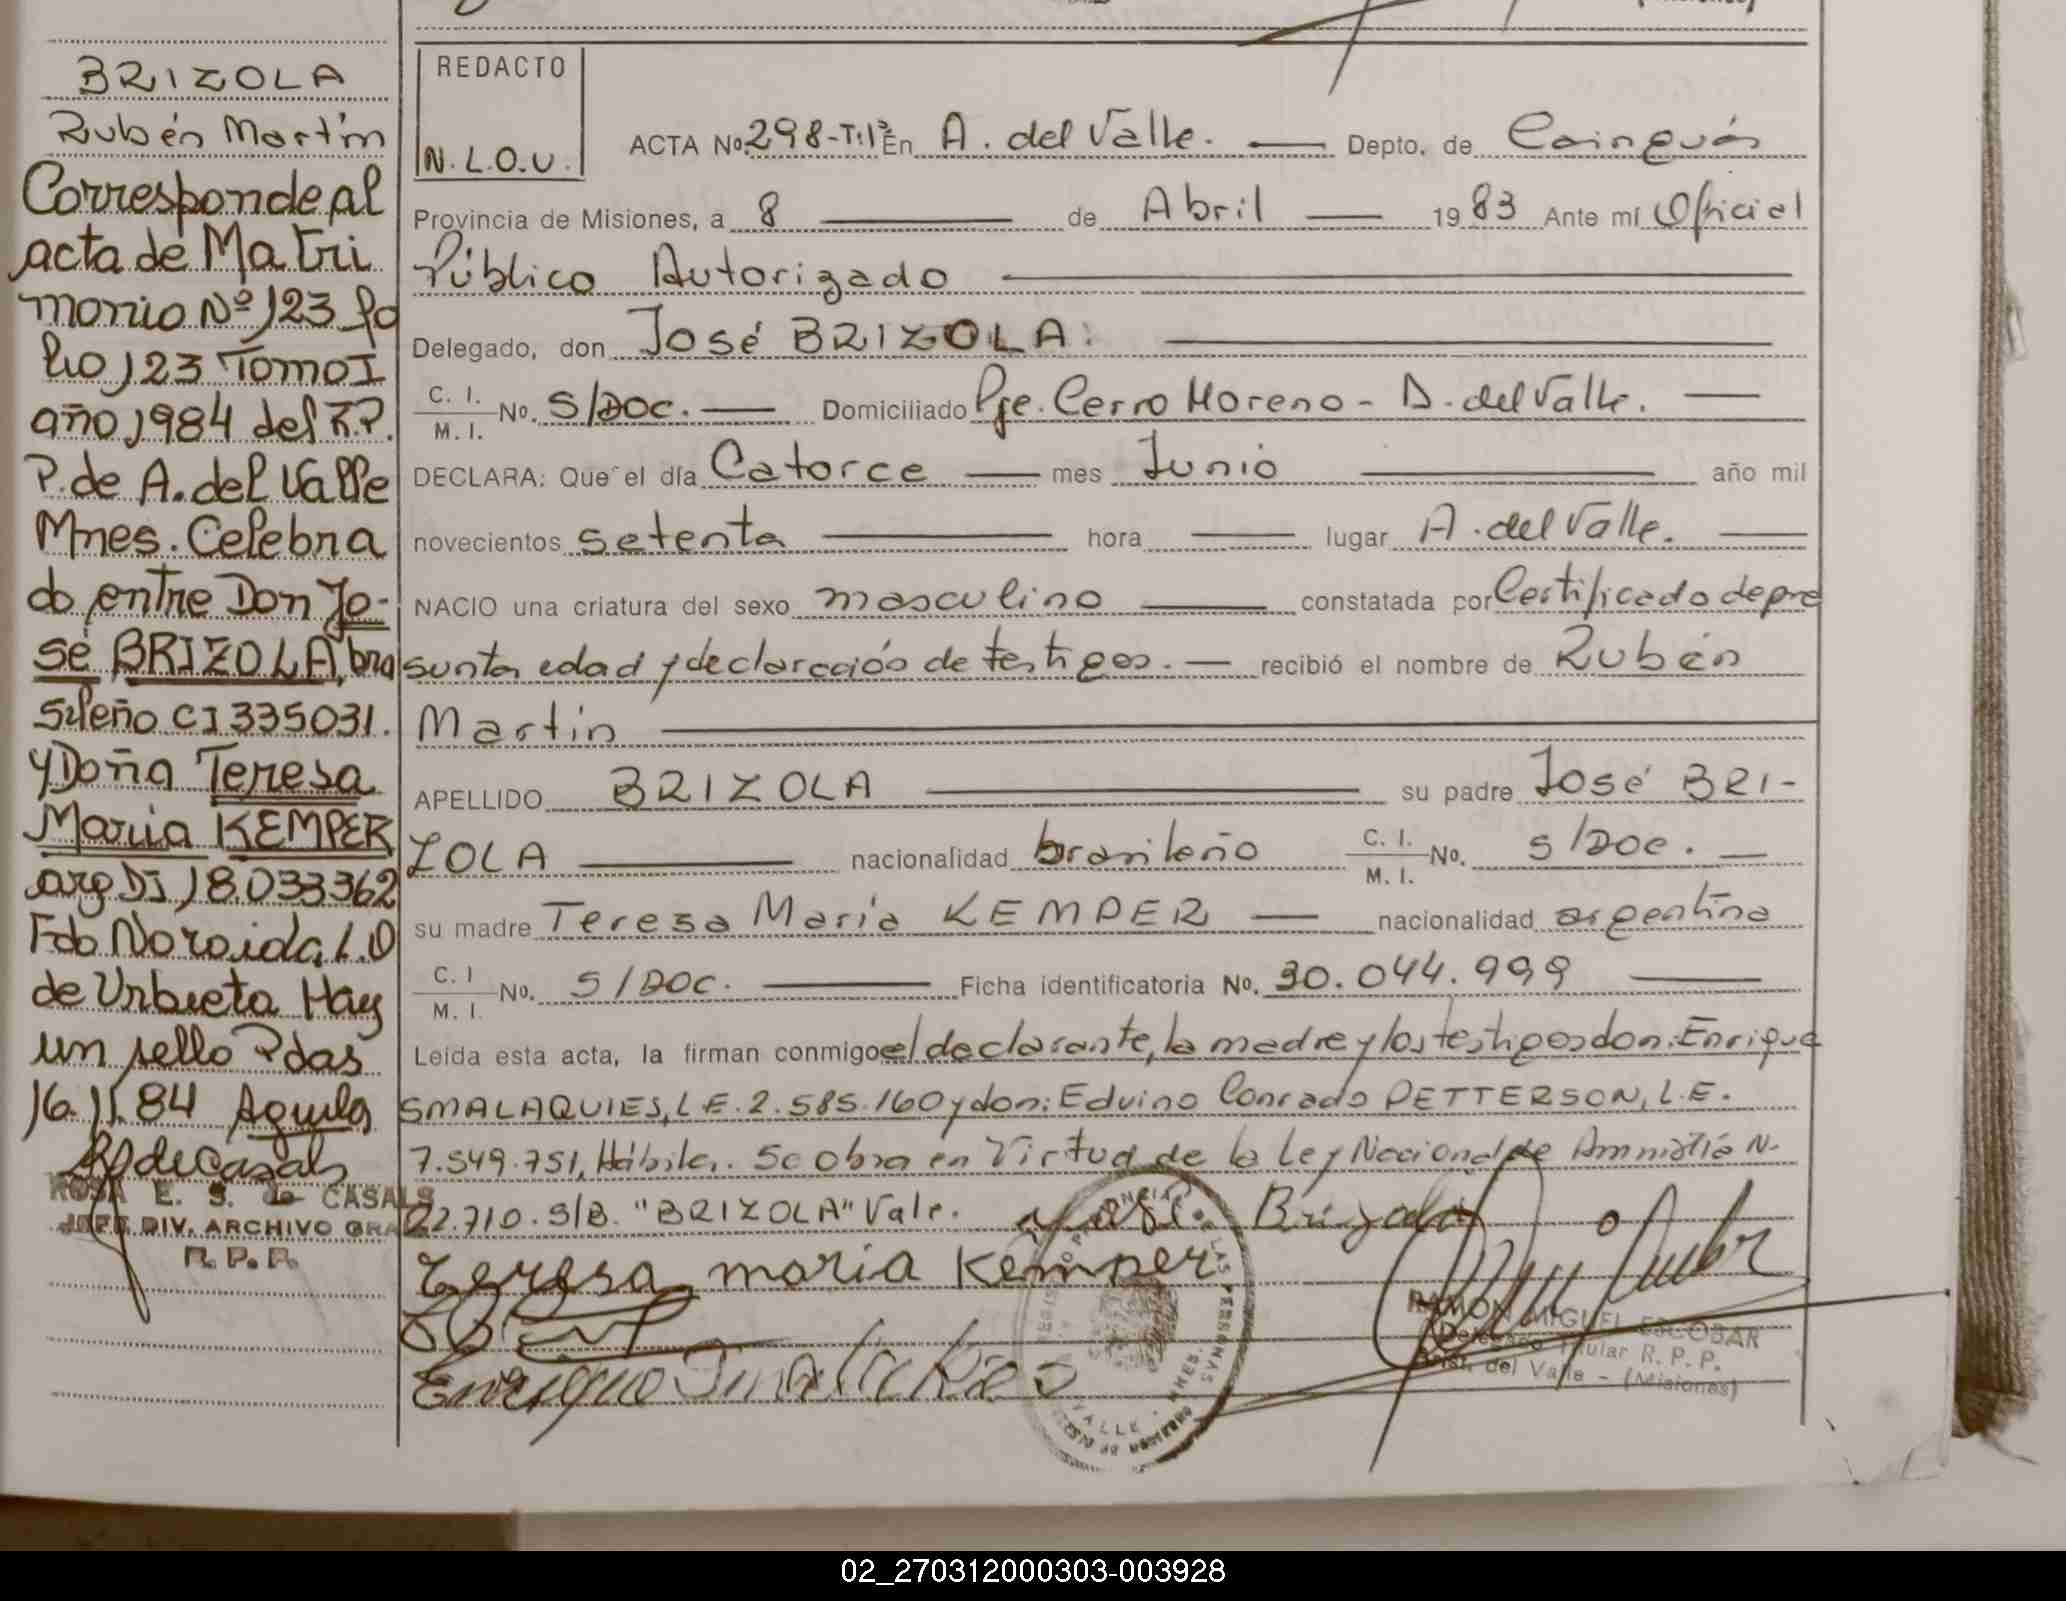 BRIZOLA
Rubén Martín
Corresponde al
acta de Matri
monio Nº 123 fo
lio 123 Tomo I
año 1984 del R.P.
P. de A. del Valle
Mnes. Celebra
do entre Don Jo-
sé BRIZOLA, bra
sileño CI 335031.
y Doña Teresa
Maria KEMPER
arg DI 18.033362
Fdo Noroida L.O
de Urbieta Hay
un sello Pdas
16.11.84
ROSA E. S. de CASALS
JEFE DIV. ARCHIVO GRAL
R. P. P.
REDACTO
N.L.O.U.
ACTA No. 298-T:1º En A. del Valle. Depto. de Cainguás
Provincia de Misiones, a 8 de Abril 1983 Ante mí Oficial
Público Autorizado
Delegado, don José BRIZOLA:
C. I.
M. I. No. S/Doc. Domiciliado Pje. Cerro Moreno - A. del Valle.
DECLARA: Que el día Catorce mes Junio año mil
novecientos setenta hora lugar A. del Valle.
NACIO una criatura del sexo masculino constatada por Certificado de pre
sunta edad y declaración de testigos. recibió el nombre de Rubén
Martín
APELLIDO BRIZOLA su padre José BRI-
ZOLA nacionalidad brasileño C. I.
M. I. No. S/Doc.
su madre Teresa María KEMPER nacionalidad argentina
C. I
M. I. No. S/Doc. Ficha identificatoria No. 30.044.999
Leída esta acta, la firman conmigo el declarante, la madre y los testigos don: Enrique
SMALAQUIES, L.E. 2.585.160 y don: Eduino Conrado PETTERSON, L.E.
7.549.751, Hábiles. Se obra en Virtud de la Ley Nacional de Amnistía N.
22.710. S/B. "BRIZOLA" Vale.
José Brizola
Teresa maria Kemper
RAMON MIGUEL ESCOBAR
Delegado Titular R. P. P.
Arist. del Valle - (Misiones)
02_270312000303-003928